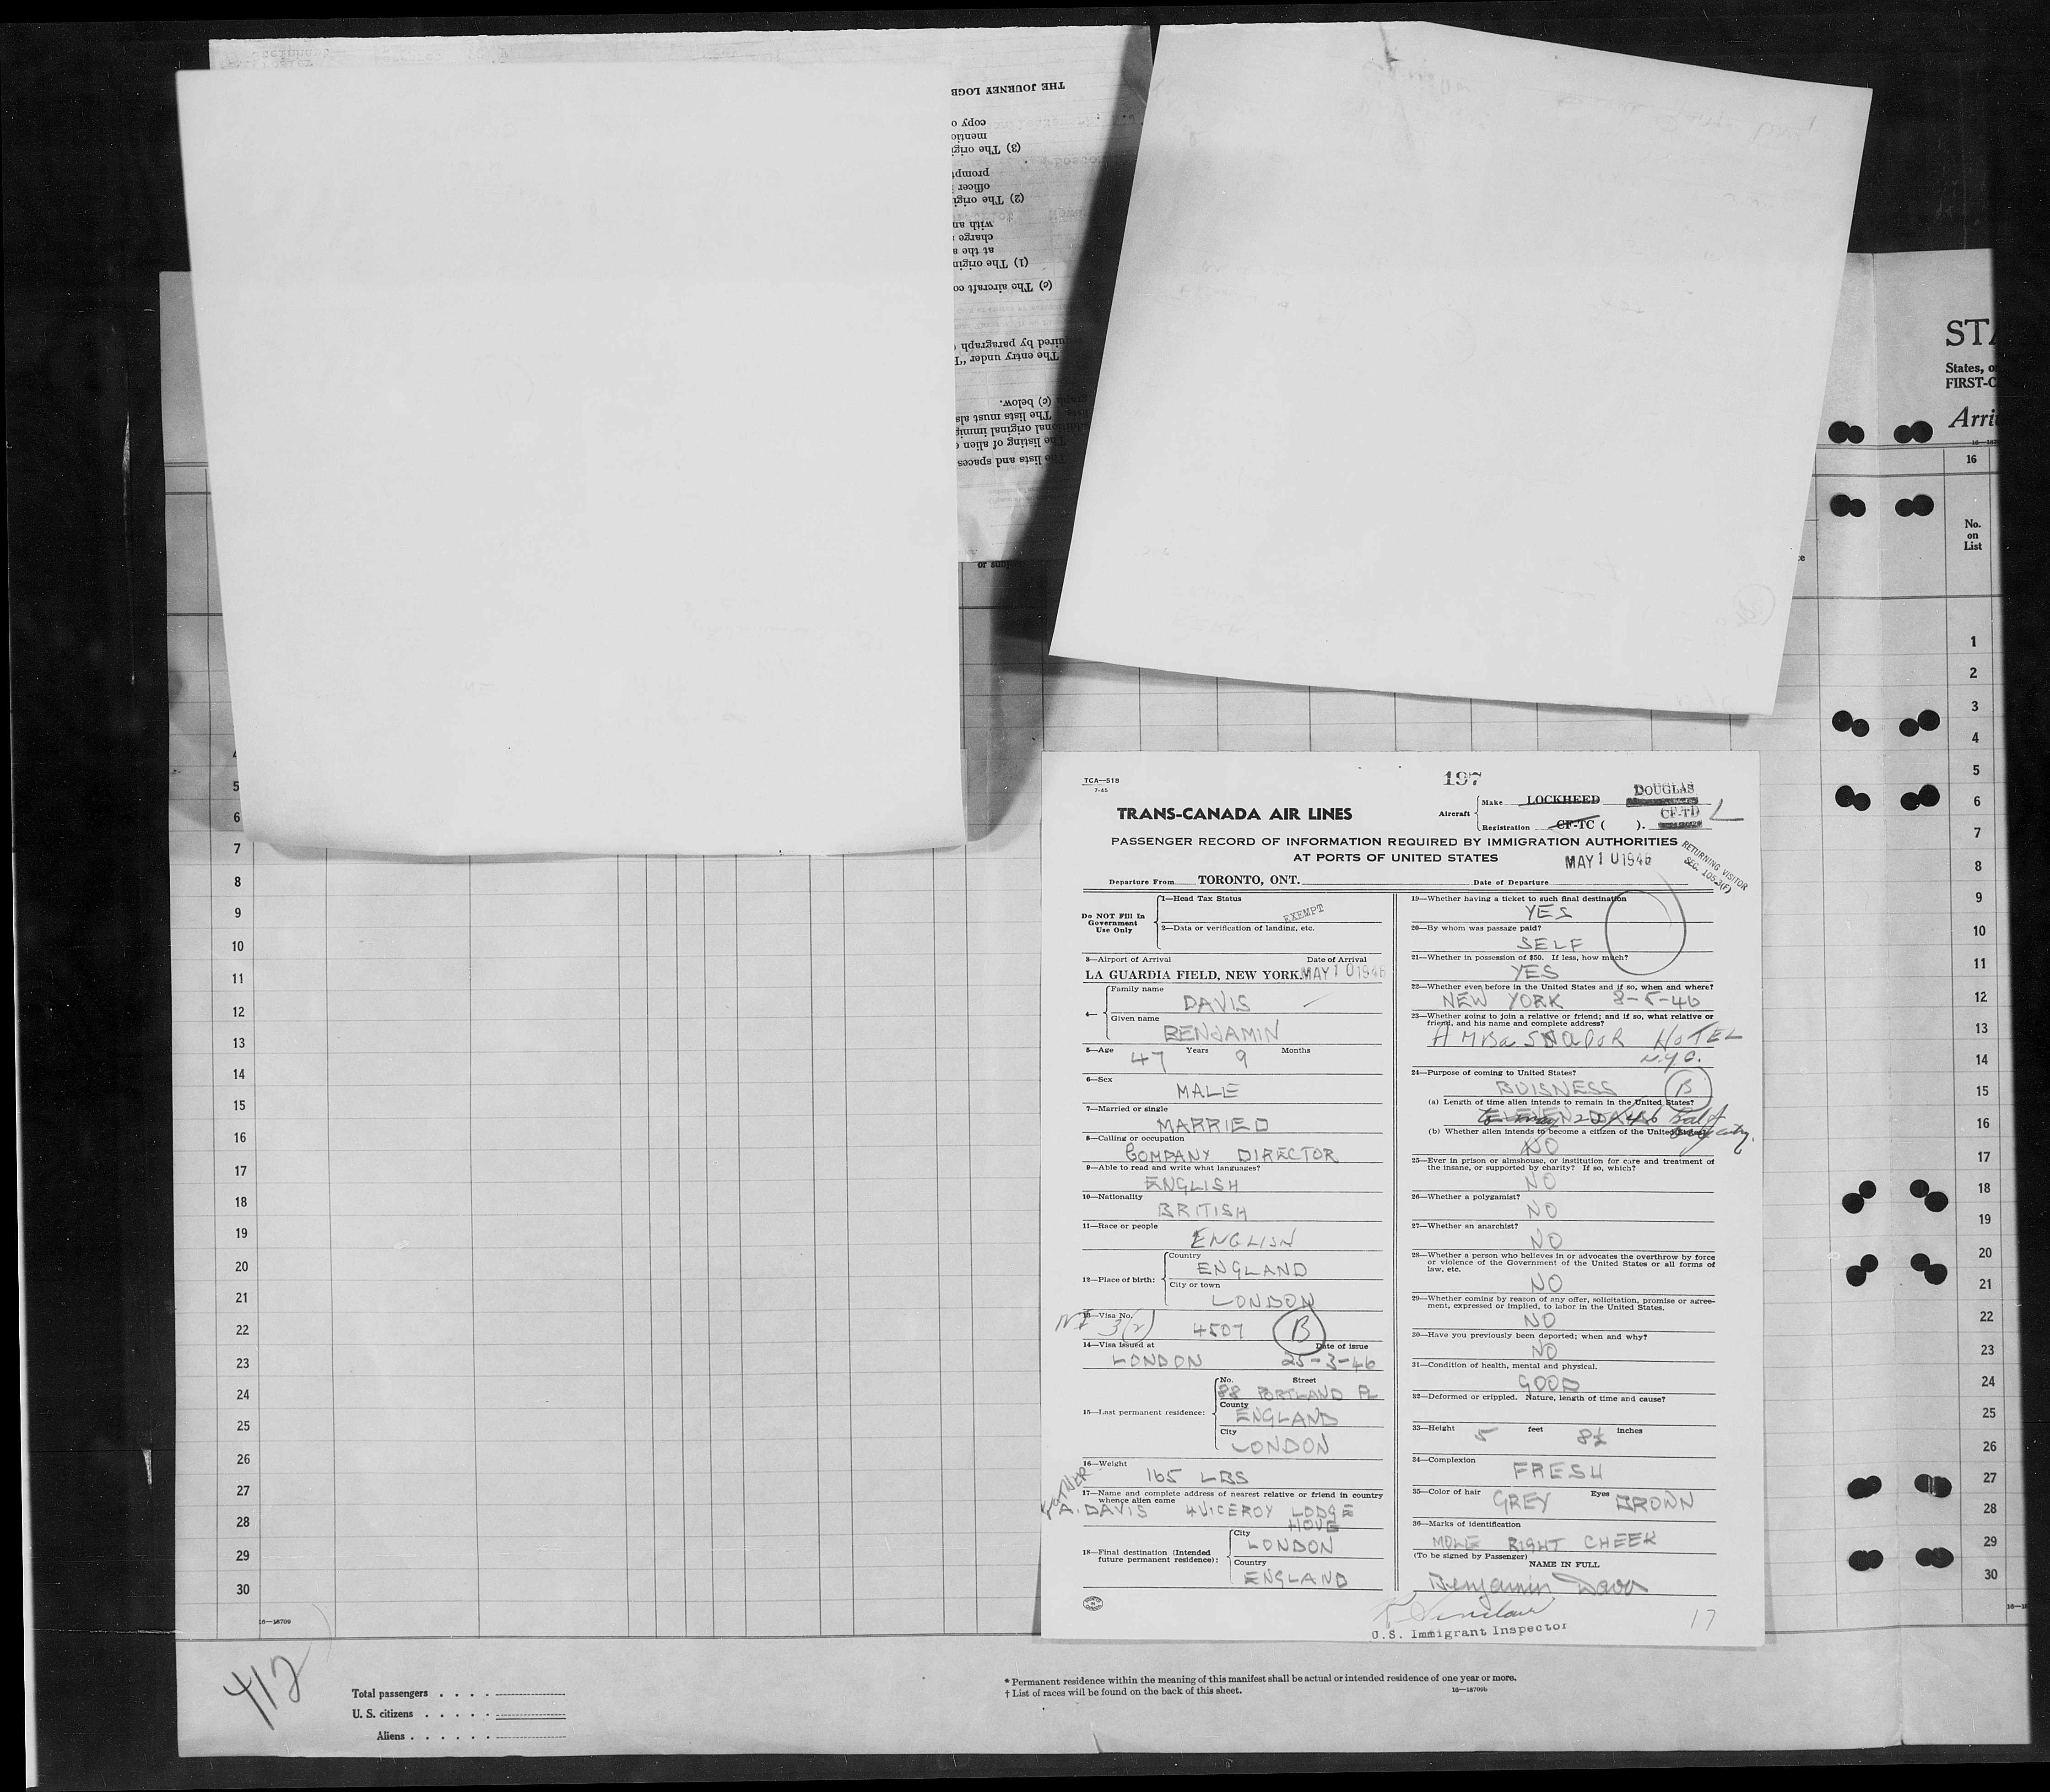 THE JOURNEY LOGB
copy o
mentio
(3) The origi
prompt
officer i
(2) The origi
with an
charge
at the s
(1) The origin
(c) The aircraft co
quired by paragraph (
The entry under "T
graph (c) below.
lists. The lists must als
additional original immig
The listing of alien c
The lists and spaces
STA
States, o
FIRST-C
Arri
16
No.
on
List
1
2
3
4
5
6
7
8
9
10
11
12
13
14
15
16
17
18
19
20
21
22
23
24
25
26
27
28
29
30
4
5
6
7
8
9
10
11
12
13
14
15
16
17
18
19
20
21
22
23
24
25
26
27
28
29
30
16—18709
412
Total passengers . . . .
U. S. citizens . . . . .
Aliens . . . . . .
* Permanent residence within the meaning of this manifest shall be actual or intended residence of one year or more.
† List of races will be found on the back of this sheet.
16—18709b
TCA—518
7-45
197
TRANS-CANADA AIR LINES
Aircraft
Make LOCKHEED DOUGLAS
Registration CF-TC ( ). CF-TD L
PASSENGER RECORD OF INFORMATION REQUIRED BY IMMIGRATION AUTHORITIES
AT PORTS OF UNITED STATES
MAY 10 1946
RETURNING VISITOR
SEC. 105.3(F)
Departure From TORONTO, ONT. Date of Departure
Do NOT Fill In
Government
Use Only
1—Head Tax Status
EXEMPT
2—Data or verification of landing, etc.
3—Airport of Arrival Date of Arrival
LA GUARDIA FIELD, NEW YORK. MAY 10 1946
4—
Family name
DAVIS
Given name
BENJAMIN
5—Age 47 Years 9 Months
6—Sex
MALE
7—Married or single
MARRIED
8—Calling or occupation
COMPANY DIRECTOR
9—Able to read and write what languages?
ENGLISH
10—Nationality
BRITISH
11—Race or people
ENGLISH
12—Place of birth:
Country
ENGLAND
City or town
LONDON
13—Visa No.
3(2) 4507 B
14—Visa issued at Date of issue
LONDON 25-3-46
15—Last permanent residence:
No. Street
88 PORTLAND PL
County
ENGLAND
City
LONDON
16—Weight
165 LBS
17—Name and complete address of nearest relative or friend in country
whence alien came
FATHER
A. DAVIS 4 VICEROY LODGE
HOVE
18—Final destination (Intended
future permanent residence):
City
LONDON
Country
ENGLAND
19—Whether having a ticket to such final destination
YES
20—By whom was passage paid?
SELF
21—Whether in possession of $50. If less, how much?
YES
22—Whether ever before in the United States and if so, when and where?
NEW YORK 8-5-46
23—Whether going to join a relative or friend; and if so, what relative or
friend, and his name and complete address?
AMBaSSADOR HOTEL
N.Y.C.
24—Purpose of coming to United States?
BUISNESS B
(a) Length of time alien intends to remain in the United States?
ELEVEN DAYS
(b) Whether alien intends to become a citizen of the United States?
NO
25—Ever in prison or almshouse, or institution for care and treatment of
the insane, or supported by charity? If so, which?
NO
26—Whether a polygamist?
NO
27—Whether an anarchist?
NO
28—Whether a person who believes in or advocates the overthrow by force
or violence of the Government of the United States or all forms of
law, etc.
NO
29—Whether coming by reason of any offer, solicitation, promise or agree-
ment, expressed or implied, to labor in the United States.
NO
30—Have you previously been deported; when and why?
NO
31—Condition of health, mental and physical.
GOOD
32—Deformed or crippled. Nature, length of time and cause?
33—Height 5 feet 8½ inches
34—Complexion
FRESH
35—Color of hair GREY Eyes BROWN
36—Marks of identification
MOLE RIGHT CHEEK
(To be signed by Passenger)
NAME IN FULL
Benjamin Davis
U.S. Immigrant Inspector
17